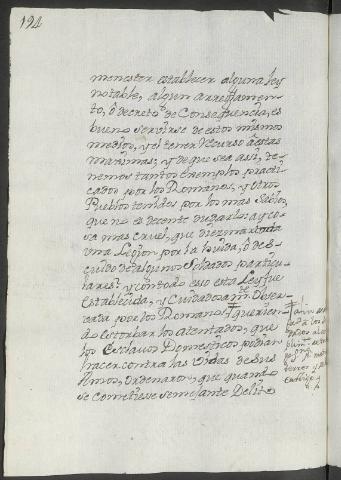 194
menester establecer alguna ley
notable, algun arreglamen-
to, ò decreto de Consequencia, es
bueno servirse de estos mismos
medios, y el tener recurso à estas
maximas; y de que sea assi, te-
nemos tantos exemplos practi-
cados por los Romanos, y otros
Pueblos tenidos por los mas Sabios,
que no es decente dudarlo: ay co-
sa mas cruel, que diezmar toda
una Legion por la huida, ò des-
cuido de algunos Soldados particu-
lares? y con todo esso esta Ley fue
establecida, y cuidadosamte. obser-
vada por los Romanos, querien-
do estorbar los atentados, que
los Esclavos Domesticos podian
hacer contra las Vidas de sus
Amos, ordenaron, que quando
se cometiesse semejante Delito